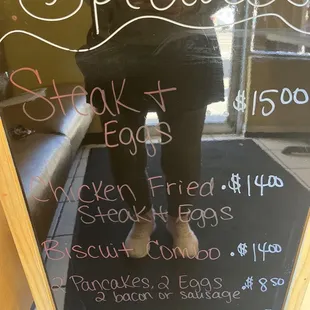 Specials
Steak +
Eggs $15.00
Chicken Fried $14.00
Steak + Eggs
Biscuit Combo $14.00
2 Pancakes, 2 Eggs $8.50
2 bacon or sausage